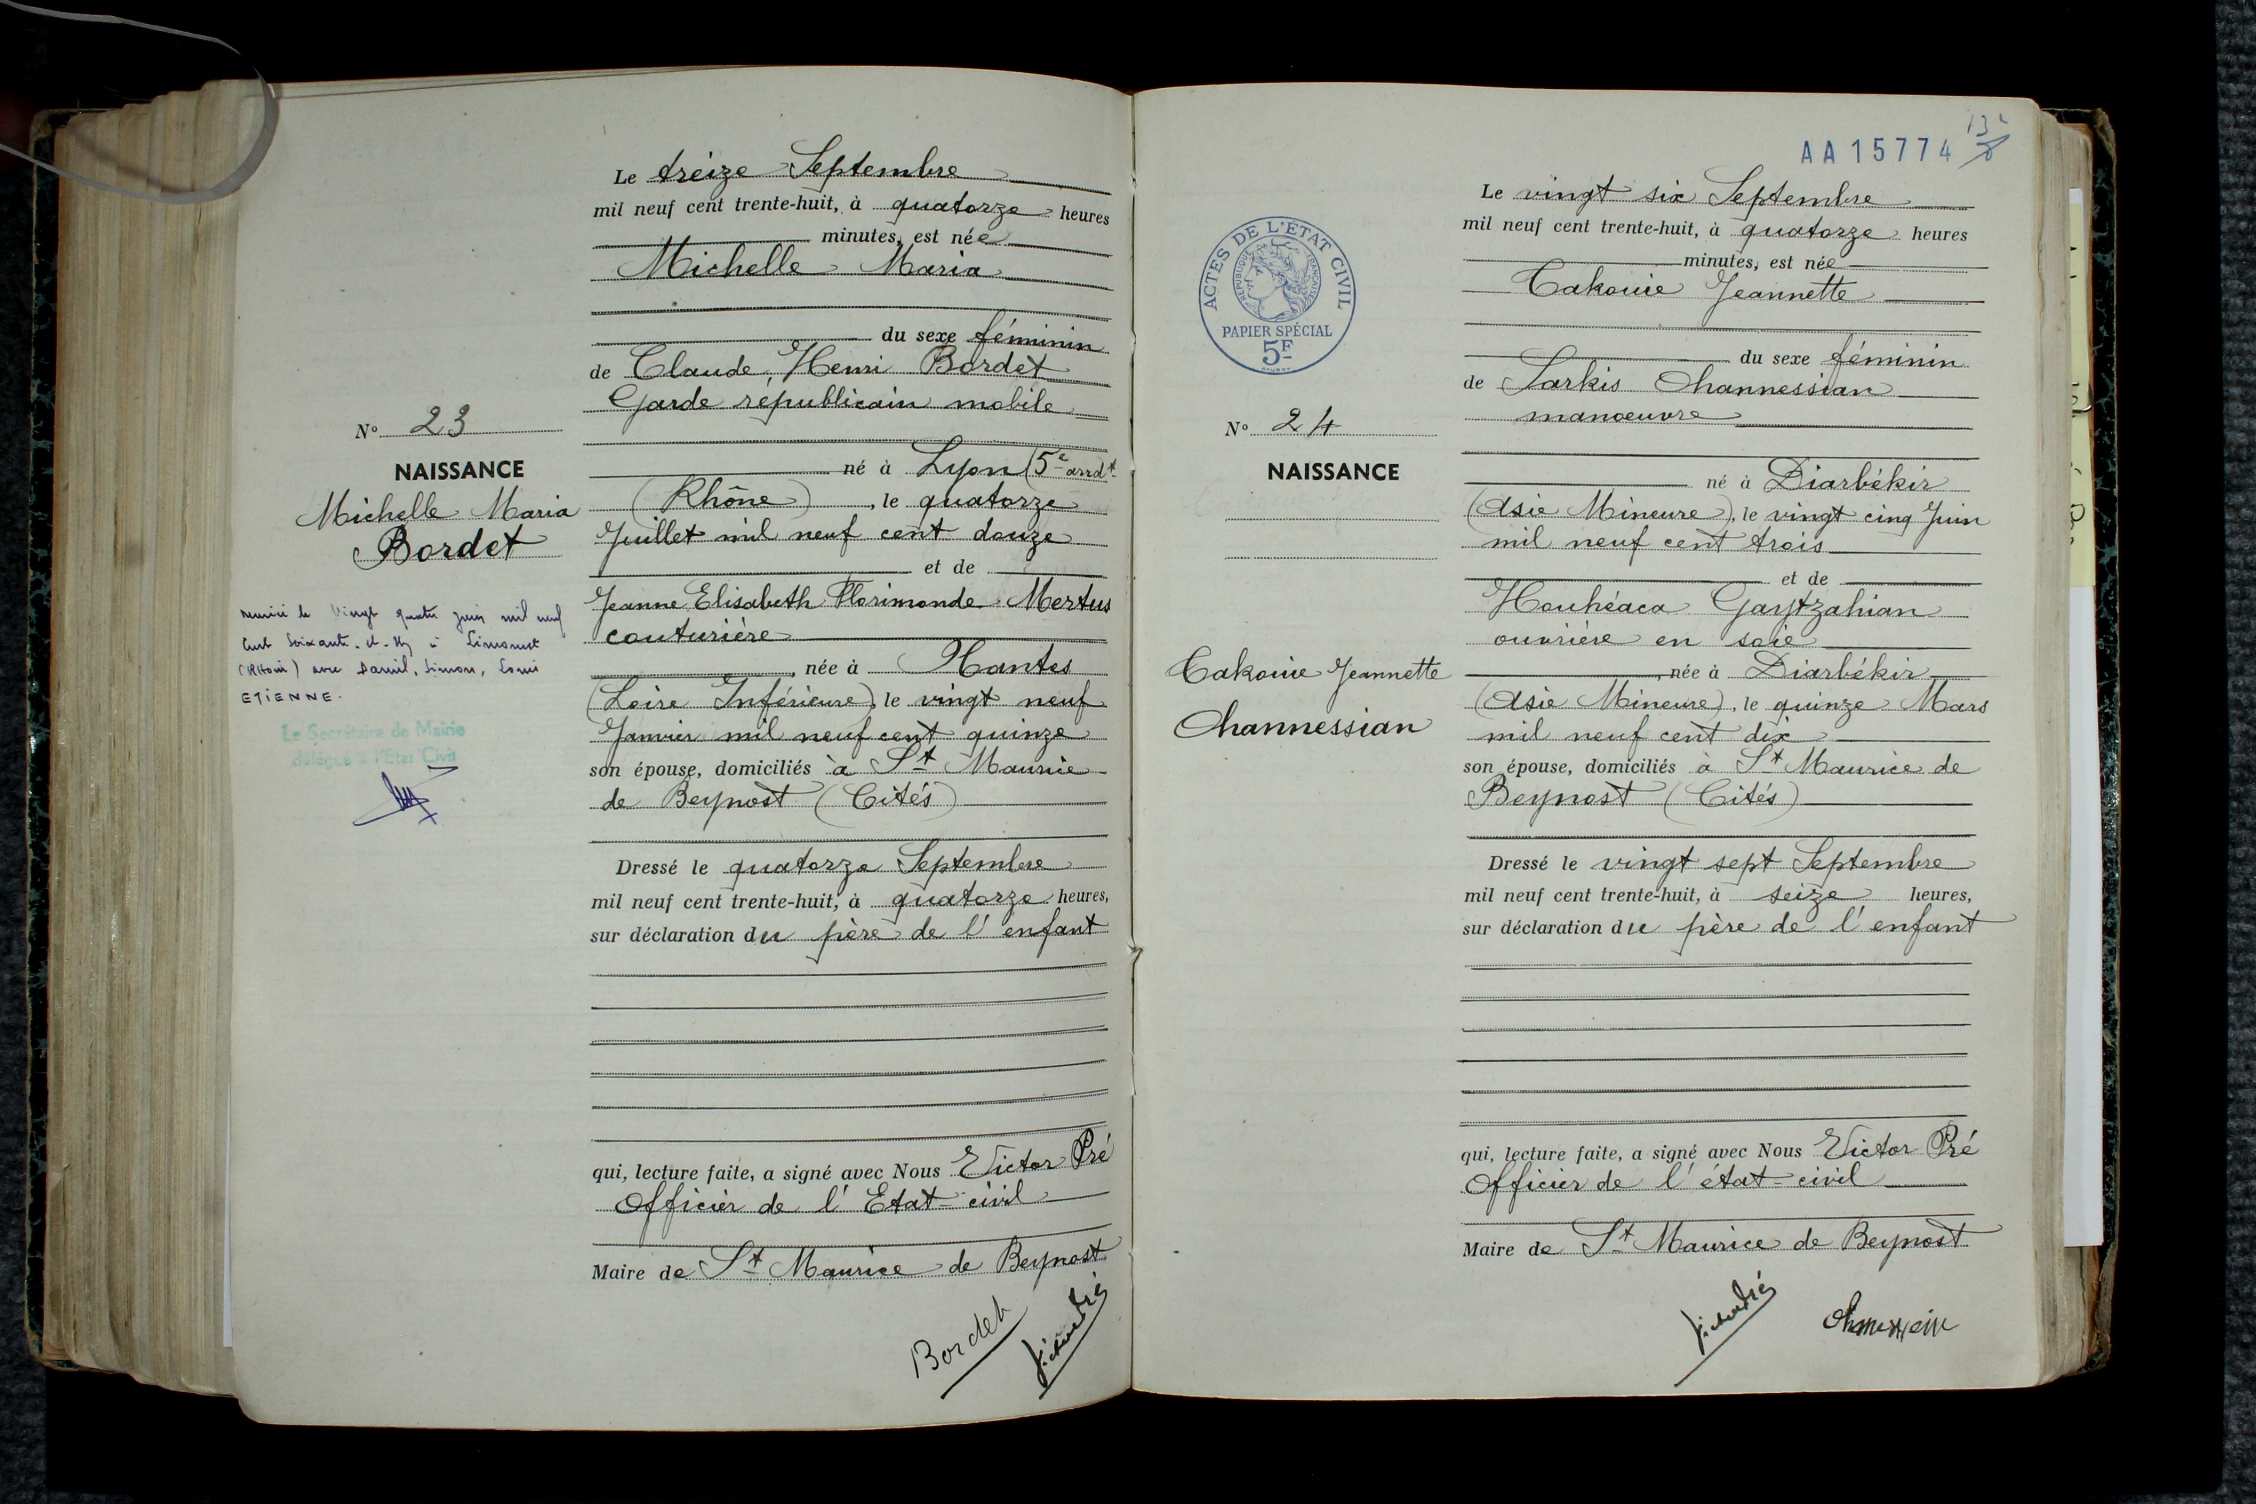 Le treize Septembre
mil neuf cent trente-huit, à quatorze heures
minutes, est née
Michelle Maria
du sexe féminin
de Claude, Henri Bordet
Garde républicain mobile
né à Lyon (5e arrdt
(Rhône), le quatorze
Juillet mil neuf cent douze
et de
Jeanne Elisabeth Florimonde Mertus
couturière
née à Nantes
(Loire Inférieure), le vingt neuf
Janvier mil neuf cent quinze
son épouse, domiciliés à St Maurice
de Beynost (Cités)
Dressé le quatorze Septembre
mil neuf cent trente-huit, à quatorze heures,
sur déclaration du père de l'enfant
qui, lecture faite, a signé avec Nous Victor Pré
Officier de l'Etat-civil
Maire de St Maurice de Beynost
Bordet
No 23
NAISSANCE
Michelle Maria
Bordet
le vingt quatre juin mil neuf
cent soixante-et- à Limonest
(Rhône) avec Daniel, Simon, Louis
ETIENNE.
Le Secrétaire de Mairie
délégué à l'Etat Civil
AA15774
ACTES DE L'ETAT CIVIL
REPUBLIQUE FRANÇAISE
PAPIER SPÉCIAL
5F
No 24
NAISSANCE
Takouie Jeannette
Ohannessian
Le vingt six Septembre
mil neuf cent trente-huit, à quatorze heures
minutes, est née
Takouie Jeannette
du sexe féminin
de Sarkis Ohannessian
manoeuvre
né à Diarbékir
(Asie Mineure), le vingt cinq Juin
mil neuf cent trois
et de
Houhéaca Gaytzahian
ouvrière en soie
, née à Diarbékir
(Asie Mineure), le quinze Mars
mil neuf cent dix
son épouse, domiciliés à St Maurice de
Beynost (Cités)
Dressé le vingt sept Septembre
mil neuf cent trente-huit, à seize heures,
sur déclaration du père de l'enfant
qui, lecture faite, a signé avec Nous Victor Pré
Officier de l'état-civil
Maire de St Maurice de Beynost